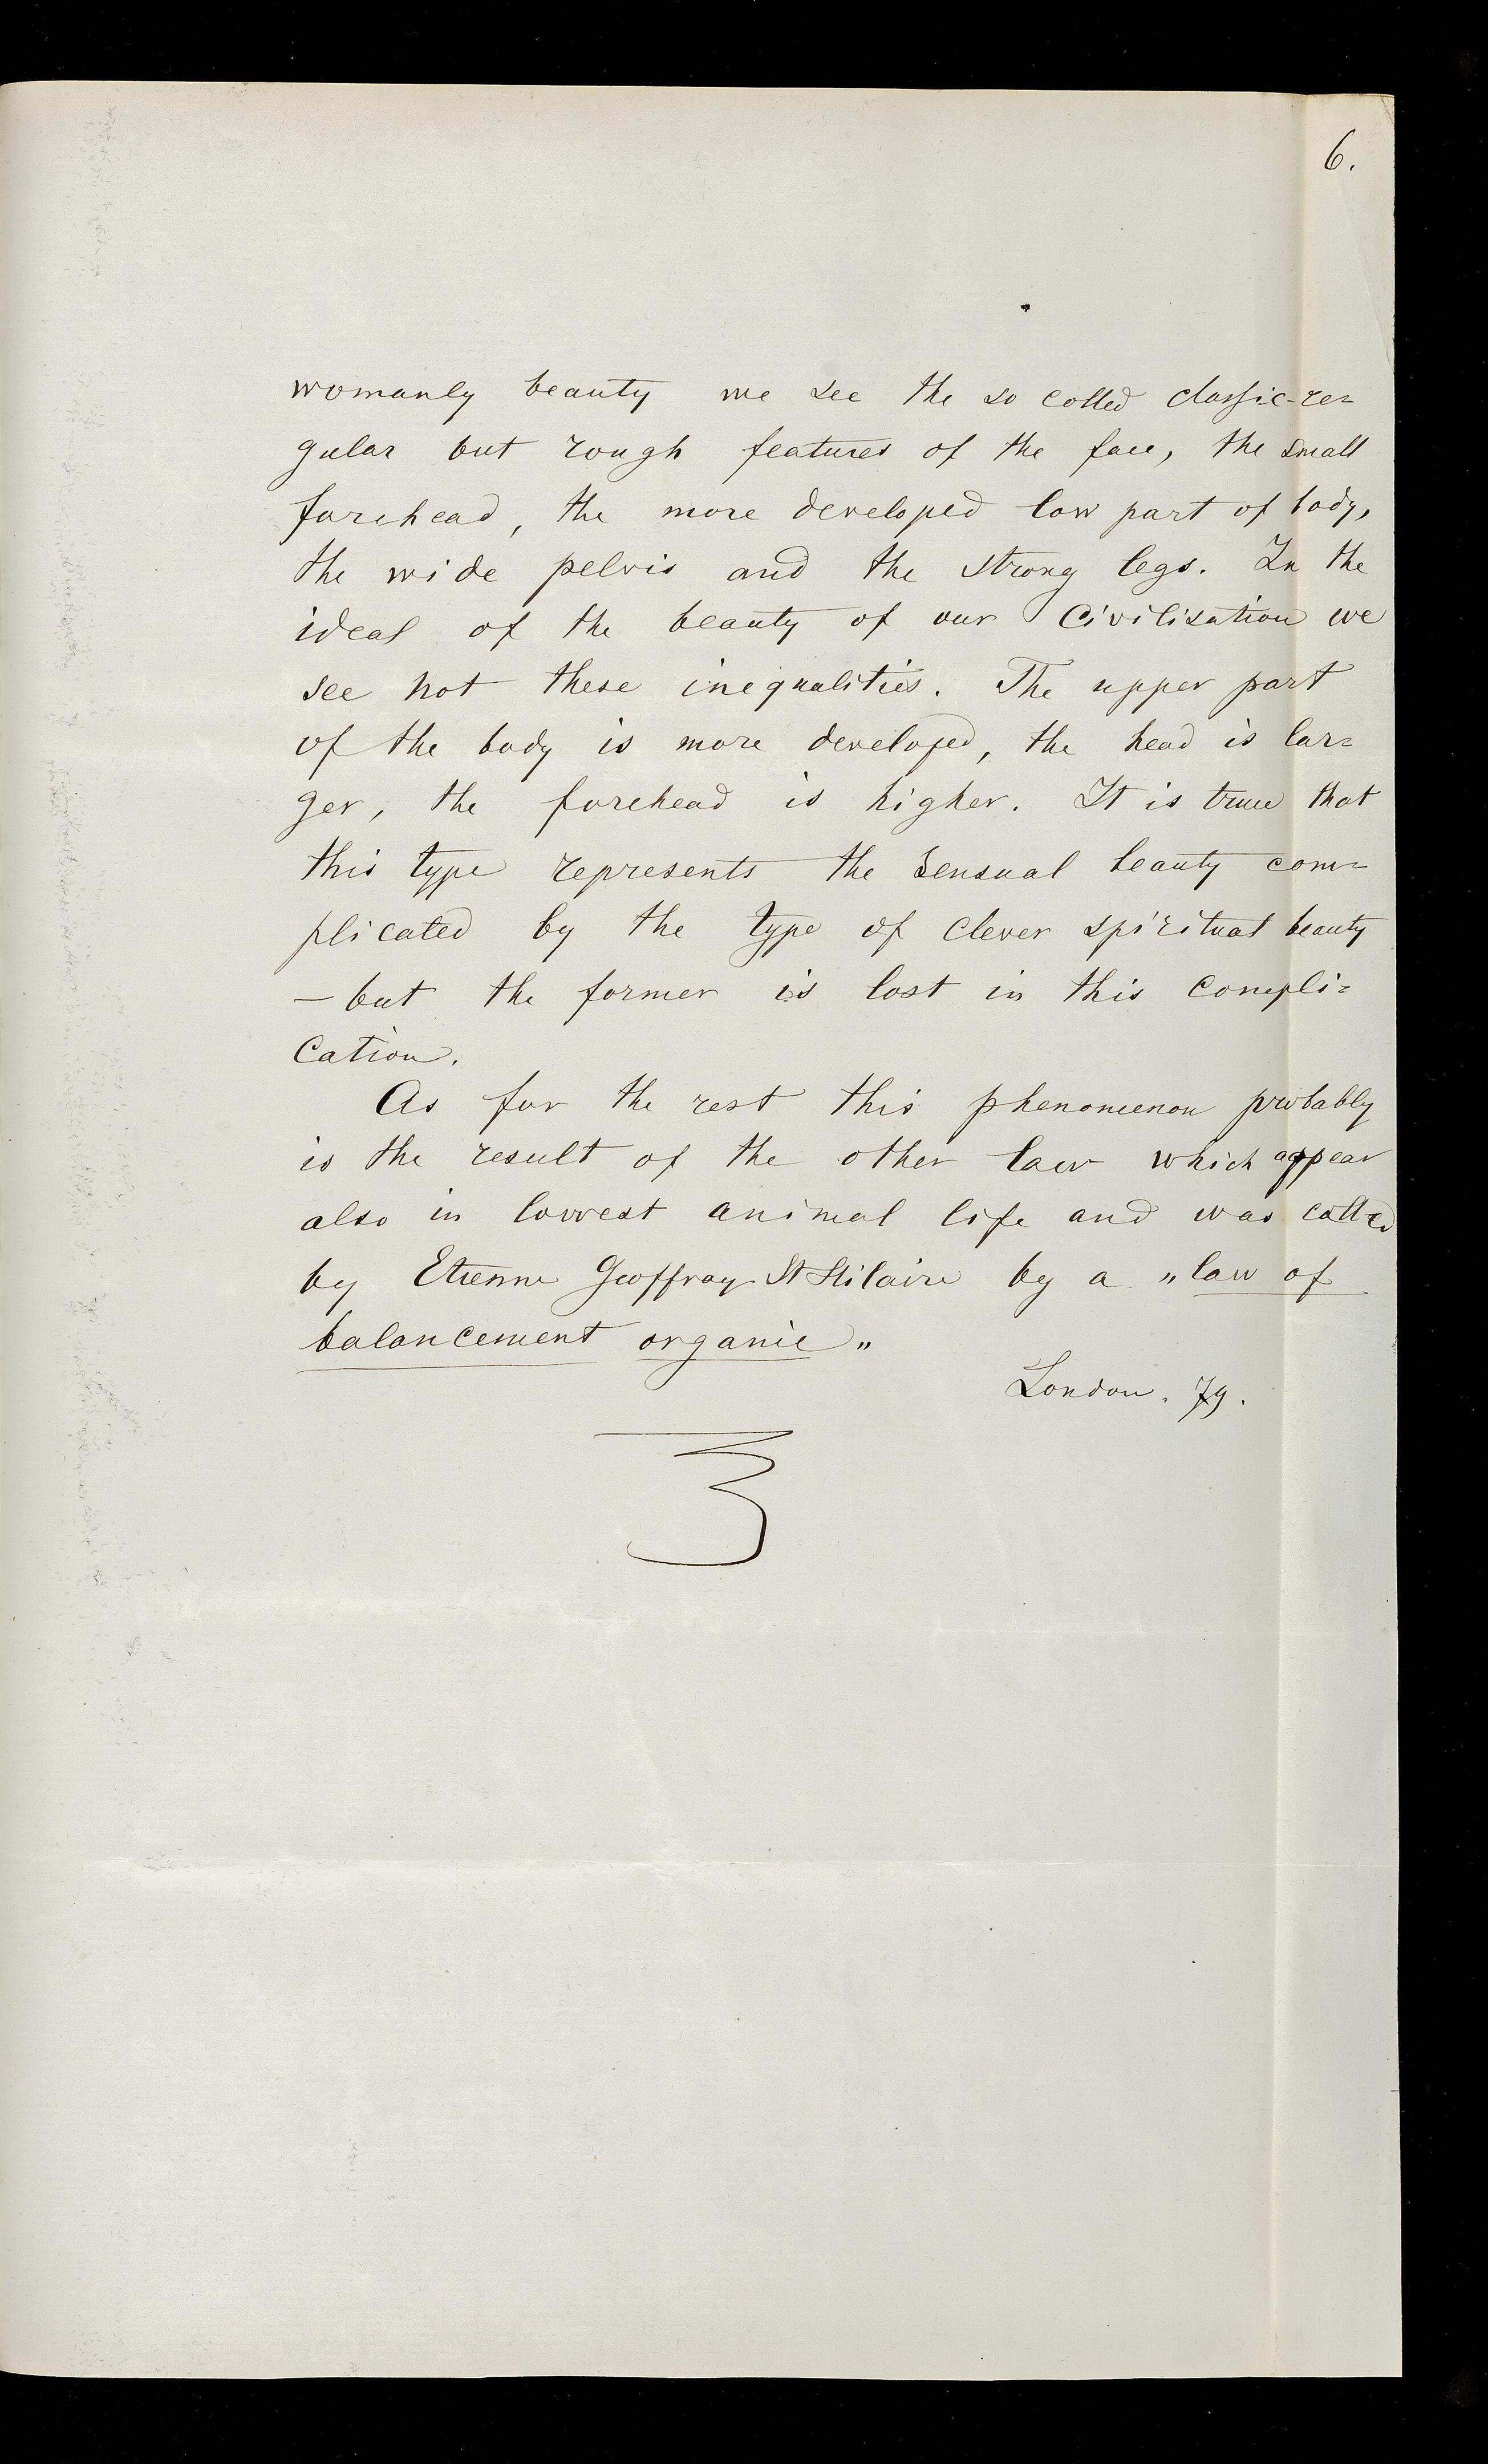 6.
womanly beauty we see the so colled classic-re=
gular but rough features of the face, the small
forehead, the more developed low part of body,
the wide pelvis and the strong legs. In the
ideal of the beauty of our Civilisation we
see not these inequalities. The upper part
of the body is more developed, the head is lar=
ger, the forehead is higher. It is true that
this type represents the sensual beauty com=
plicated by the type of clever spiritual beauty
— but the former is lost in this compli=
cation.
As for the rest this phenomenon probably
is the result of the other law which appear
also in lowest animal life and was colled
by Etienne Geoffroy St Hilaire by a „law of
balancement organic„
London. 79.